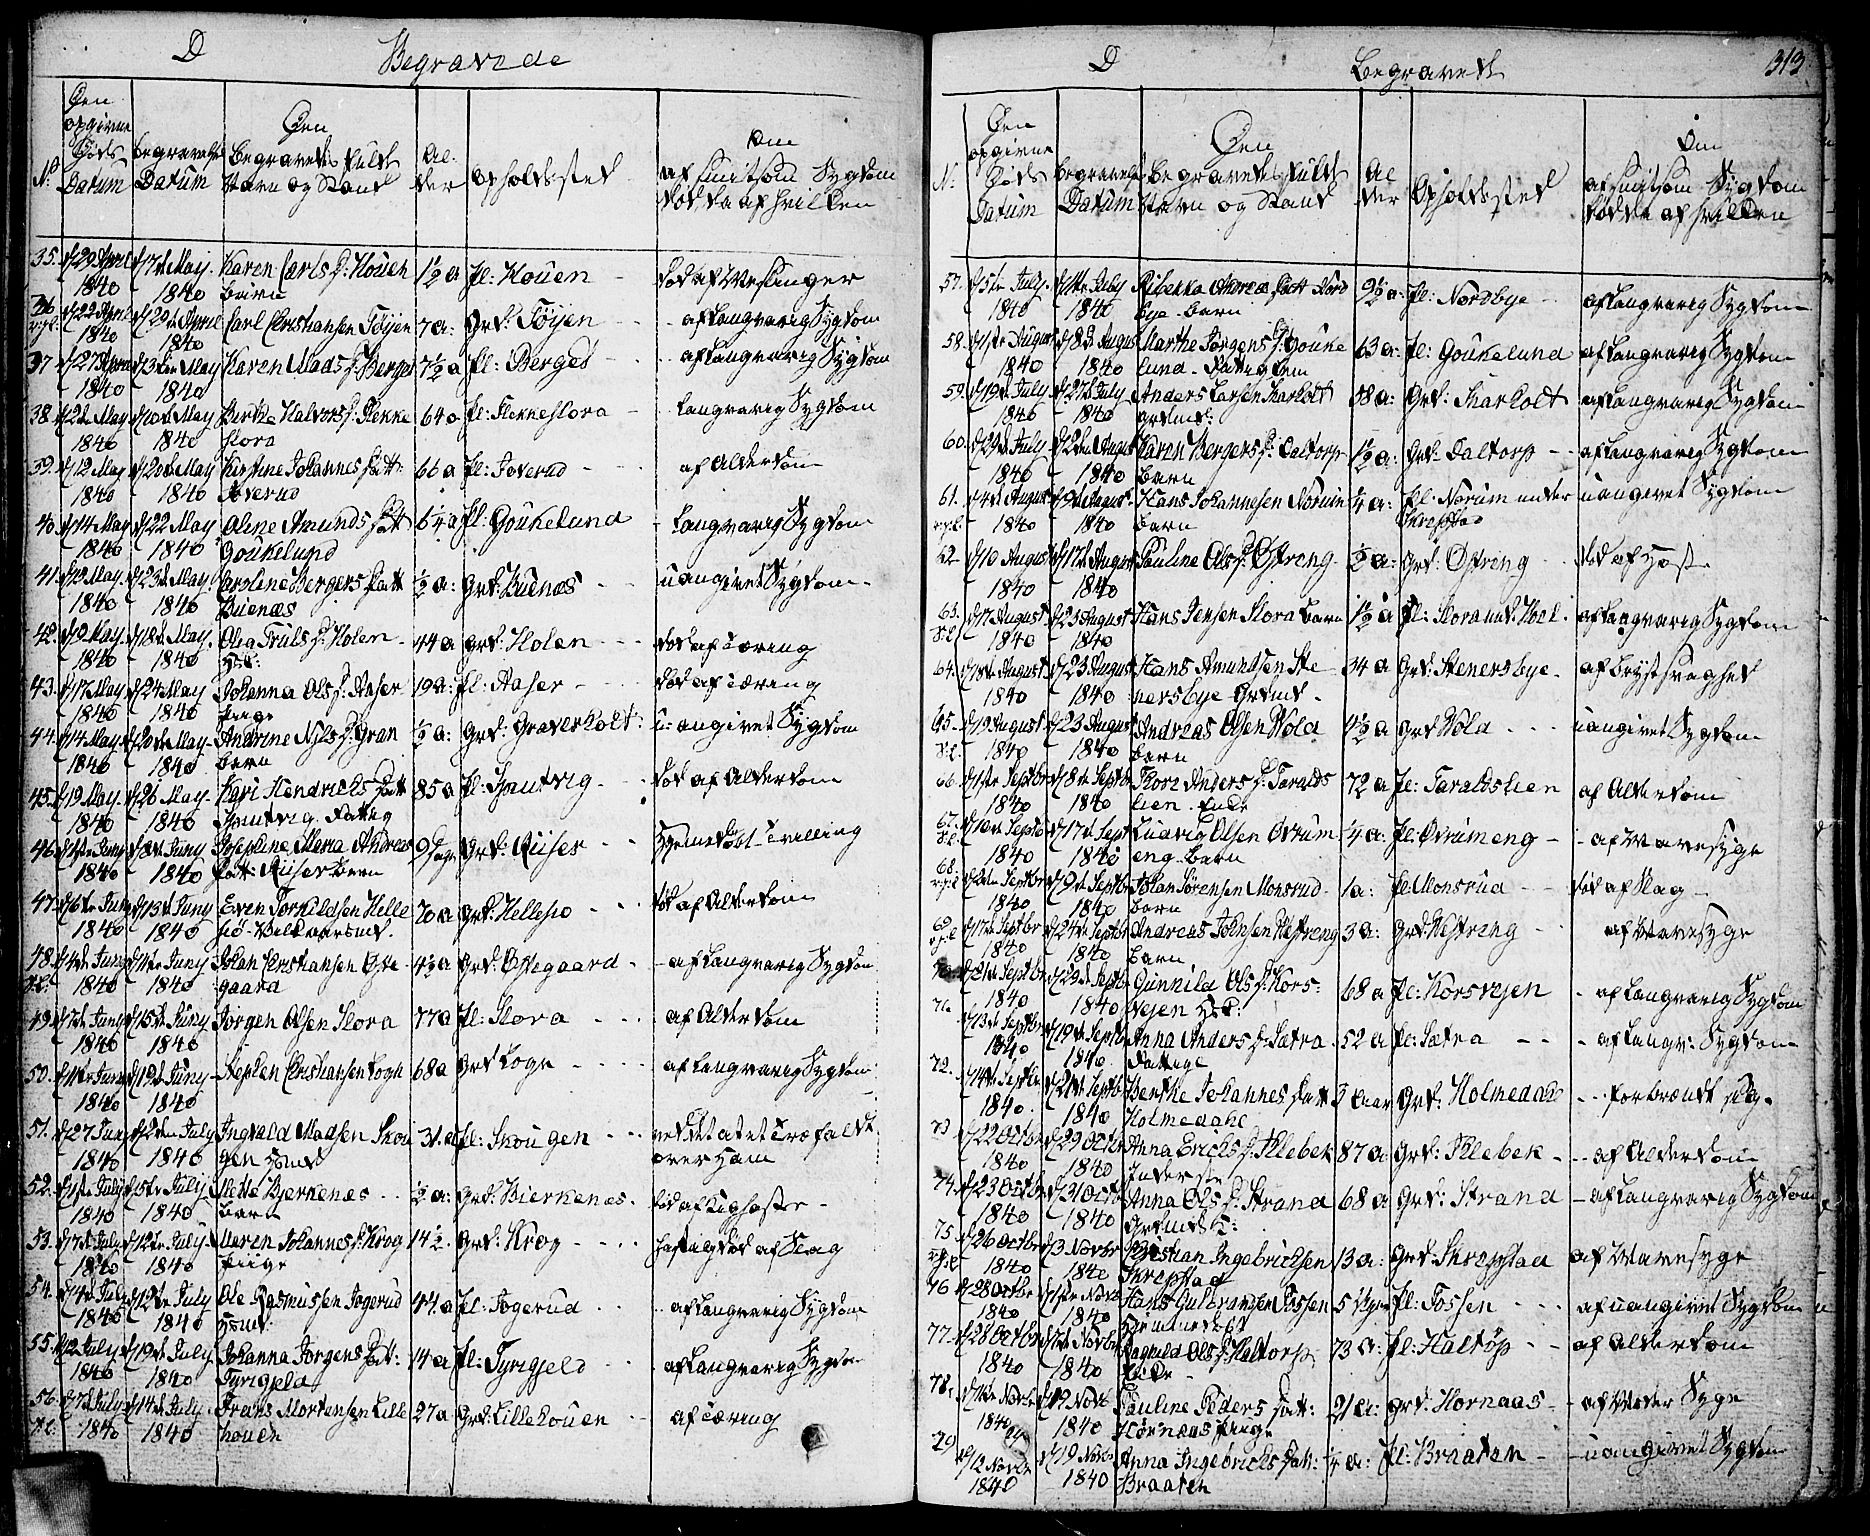 D Begravede
No
Den opgivne Døds Datum
Begravelses Datum
Den Begravedes fulde Navn og Stand
Alder
Opholdssted
Om af smitsom Sygdom død, da af hvilken
35. d/29 April 1840 d/17de May 1840 Karen Carls D: Houen barn 1½ a Pl: Houen
36 d/22 April 1840 d/29de April 1840 Carl Christiansen Töyen 7 a: Grd: Töyen - af Langvarig Sygdom
37 d/27 April 1840 d/3die May 1840 Karen Mads D: Berget 7½ a Pl: Berget - af Langvarig Sygdom
38. d/2de May 1840 d/10de May 1840 Berthe Halvors D: Flekke Flora 64 a Pl: Flekkeflora - Langvarig Sygdom
39. d/12 May 1840 d/20de May 1840 Kirstine Johannes datt: Toverud 66 a Pl: Toverud - af Alderdom
40 d/14 May 1840 d/22 May 1840 Oline Amunds datt Goukelund 6¼ a Pl: Goukelund - Langvarig Sygdom
41. d/19 May. 1840 d/23de May. 1840 Caroline Bergers datt Buenæs ½ a: Grd: Buenæs - uangivet Sygdom
42. d/9 May. 1840 d/18de May. 1840 Olea Truls D: Holen 44 a Grd: Holen - død af Tæring
43. d/17 May 1840 d/24 May 1840 Johanna Ols D: Aaser Pige 19 a: Pl: Aaser - død af Tæring
44. d/14 May. 1840 d/20de May 1840 Andrine Niels D: Gran barn ½ a: Grd: Graverholt: u: angivet Sygdom
45. d/19 May. 1840 d/26 May 1840 Kari Hendrichs datt Spertvig. Fattig 85 a Pl: Spertvig - død af Alderdom
46. d/1ste Juny 1840 d/8de Juny 1840 Josephine Maria Andreas datt: Riiser Barn 9 Dage Grd: Riiser - Hjemmedøbt Tvilling
47. d/6te Juny 1840 d/13de Juny 1840 Even Torkildsen Helle siö - Velkaarsmd. 70 a Grd: Hellesiö - død af Alderdom
48. d/4de Juny 1840 d/11te Juny 1840 Johan Christiansen Öste gaard 4½ a Grd: Östegaard - af Langvarig Sygdom
49. d/7de Juny 1840 d/15de Juny 1840 Jörgen Olsen Flora 77 a Pl: Flora - af Alderdom
50. d/11te Juny 1840 d/19de Juny 1840 Stephen Christiansen Togn 68 a Grd: Togn - af Langvarig Sygdom
51. d/27 Juny 1840 d/2den July 1840 Ingvald Madsen Skou gen Hsmd 31. a: Pl: Skougen - ved det at et Træ faldt over Ham
52. d/1ste July 1840 d/5te July 1840 Mette Bjerkenæs barn ½ a: Grd: Bierkenæs. død af Kighoste
53. d/7de July 1840 d/12te July 1840 Maren Johannes D: Krog Pige 14½. Grd: Krog - hastig død af Slag
54. d/4de July 1840 d/12te July 1840 Ole Rasmussen Togerud Hsmd: 44. a Pl: Togerud - af Langvarig Sygdom
55. d/12 July. 1840 d/19de July. 1840 Johanna Jörgens datt: Tyrigjeld 14 a Pl: Tyrigjeld - af Langvarig Sygdom
56. d/7de July 1840 d/14de July. 1840 Frans Mortensen Lille houen 27 a Grd: Lillehouen - af Tæring
D Begravede 313
No.
Den opgivne Døds Datum
Begravelses Datum
Den Begravedes fulde Navn og Stand
Alder
Opholdssted
Om af smitsom Sygdom død, da af hvilken
57. d/5te July. 1840 d/11te July 1840 Ribekka Andrea datt Nord bye - Barn 9½ a: Pl: Nordbye - af Langvarig Sygdom
58. d/1ste August 1840 d/8de August 1840 Marthe Jörgens D: Gouke lund - Fattiglem 63 a: Pl: Goukelund af Langvarig Sygdom
59. d/19de July 1840 d/27de July 1840 Anders Larsen Skarholt Grdmd: 58 a: Grd: Skarholt af Langvarig Sygdom
60. d/29de July 1840 d/2den August 1840 Karen Bergers D: Daltorp barn 1½ a: Grd: Daltorp - af Langvarig Sygdom
61. d/4de August 1840 d/9de August 1840 Hans Johannesen Norum barn ¼ a: Pl: Norum under Skrepstad uangivet Sygdom
62 d/10 August 1840 d/17de August 1840 Pauline Ols D: Östreng ½ a: Grd: Östreng død af Hoste
63. d/17 August 1840 d/23 August 1840 Hans Jensen Flora Barn 1½ a Pl: Flora und: Hoel. af Langvarig Sygdom
64. d/18de August 1840 d/23 August 1840 Hans Amundsen Ste nersbye Grdmd. 34 a Grd: Stenersbye. af Brystsvaghed
65. d/19 August 1840 d/23 August 1840 Andreas Olsen Wold barn 4½ a Grd Wold - uangivet Sygdom
66. d/1ste Septbr 1840 d/8de Septbr 1840 Thore Anders D: Taralds lien - Enke 72 a Pl: Taraldslien af Alderdom
67. d/10de Septbr 1840 d/17de Septb 1840 Ludvig Olsen Övrum eng - Barn ¼ a: Pl: Övrumeng - - af Waresyge
68. d/2den Septbr 1840 d/9de Septbr 1840 Johan Sörensen Monsrud barn 1 a: Pl: Monsrud - død af Slag
69 d/17de Septbr 1840 d/24de Septbr 1840 Andreas Johnsen Westreng barn 3 a: Grd: Westreng - af Waresyge
70. d/21de Septbr 1840 d/29de Septbr 1840 Gunnild Ols D: Kors: vejen Hsk: 68 a Pl: Korsvejen - af Langvarig Sygdom
71. d/13de Septbr 1840 d/19de Septbr 1840 Anna Anders D: Sætra Fattige 52 a Pl: Sætra - - af Langv: Sygdom
72. d/14de Septbr 1840 d/21de Septbr 1840 Berthe Johannes datt Holmedahl 3 Aar Grd: Holmedahl - forbrændt sig.
73 d/22 Octbr 1840 d/29 Octbr 1840 Anna Erichs D: Kllebek Inderste 87 a: Grd: Kllebek - af Alderdom
74. d/23 Octbr 1840 d/31 Octbr 1840 Anna Ols D: Strand Grdmds K: 68 a Grd: Strand - af Langvarig Sygdom
75. d/26 Octbr 1840 d/3 Novbr 1840 Christian Ingebrichtsen Skrepstad 13 a: Grd: Skrepstad af Waresyge
76 d/28 Octbr 1840 d/1ste Novb 1840 Hans Gulbrandsen Fossen Hjemmedøbt Pl: Fossen - af uangivet Sygdom
77. d/28 Octbr 1840 d/7de Novbr 1840 Ragnild Ols D: Haltorp Enke 73 a: Pl: Haltöp - af Alderdom
78. d/11te Novbr 1840 d/19 Novbr 1840 Pauline Peders datt: Hornæs Pige 21 a: Grd: Hornaas - af Syge
79. d/12 Novbr 1840 d/19 Novbr 1840 Anna Ingebrichts datt: Braaten ¼ a: Pl: Braaten - uangivet Sygdom